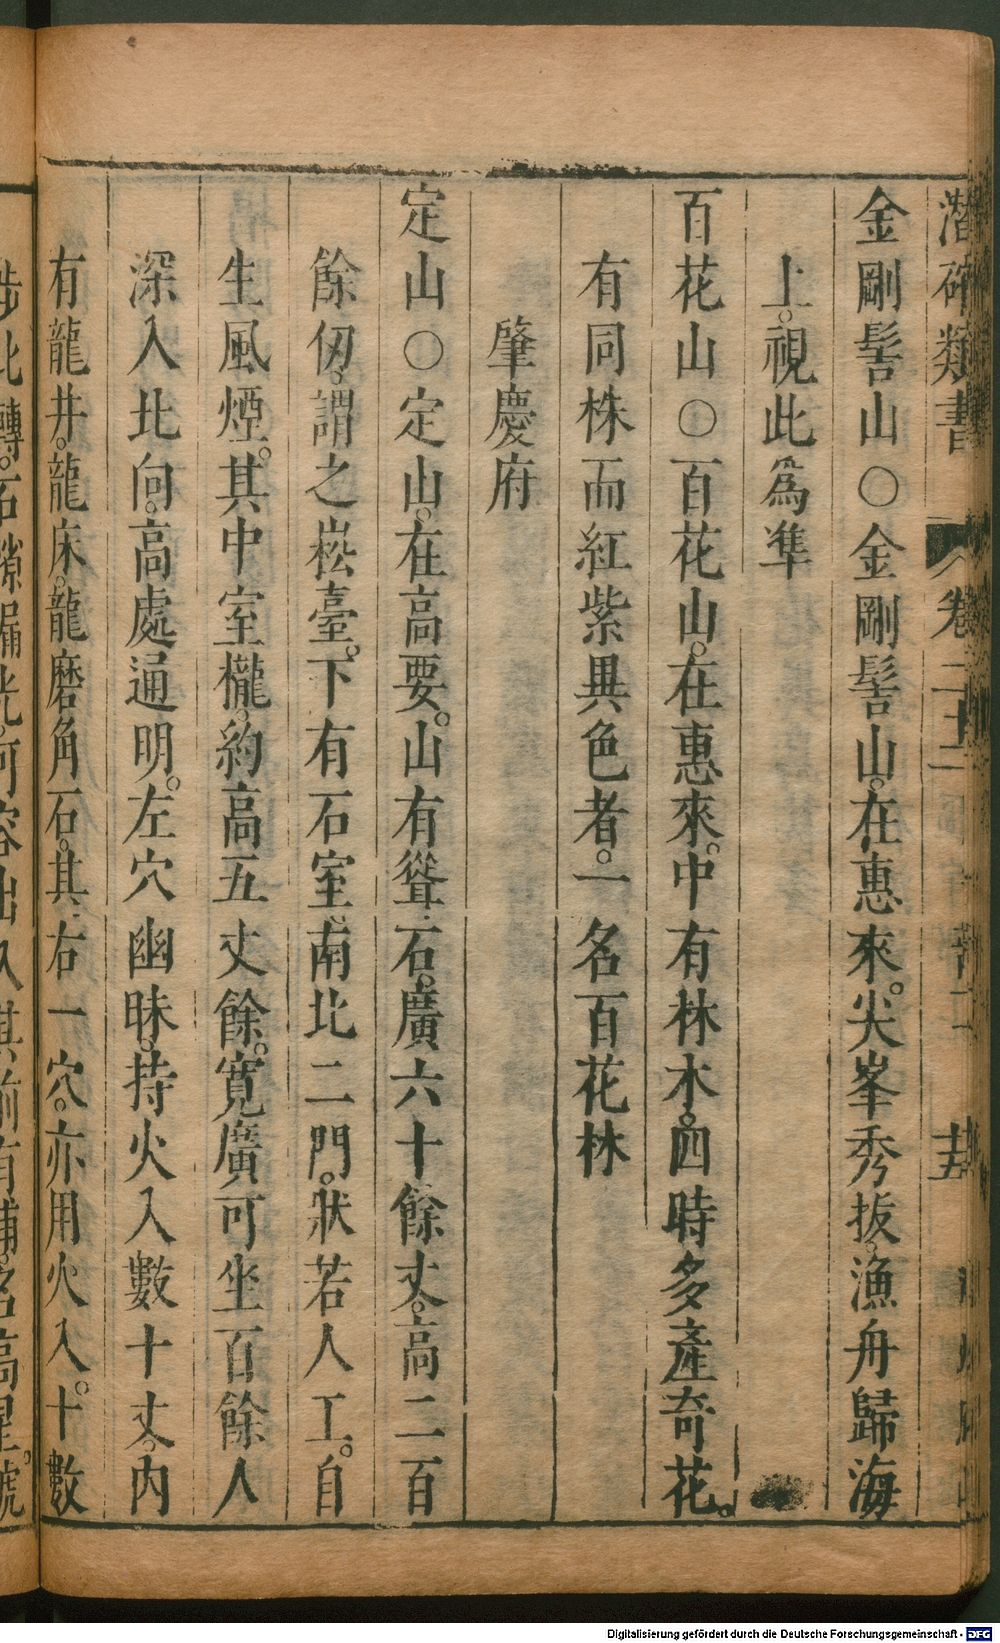 潛確類書 卷二十二 十五
金剛髻山○金剛髻山。在惠來。尖峯秀拔。漁舟歸海
上。視此爲準
百花山○百花山。在惠來。中有林木。四時多產奇花。
有同株而紅紫異色者。一名百花林
肇慶府
定山○定山。在高要。山有聳石。廣六十餘丈。高二百
餘仞。謂之崧臺。下有石室。南北二門。狀若人工。自
生風煙。其中室櫳。約高五丈餘。寬廣可坐百餘人
深入北向。高處通明。左穴幽昧。持火入數十丈。內
有龍井。龍床。龍磨角石。其右一穴。亦用火入。十數
步北轉。石隙漏光。可容出入其前有浦。名高星。號